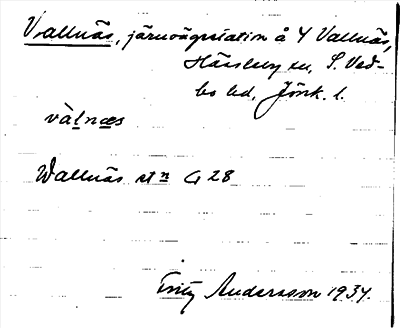 Vallnäs, järnvägsstation å Y Vallnäs,
Hässleby sn, S. Ved-
bo hd, Jönk. l.
vàlnæs
Wallnäs stn G 28
Fritz Andersson 1934.